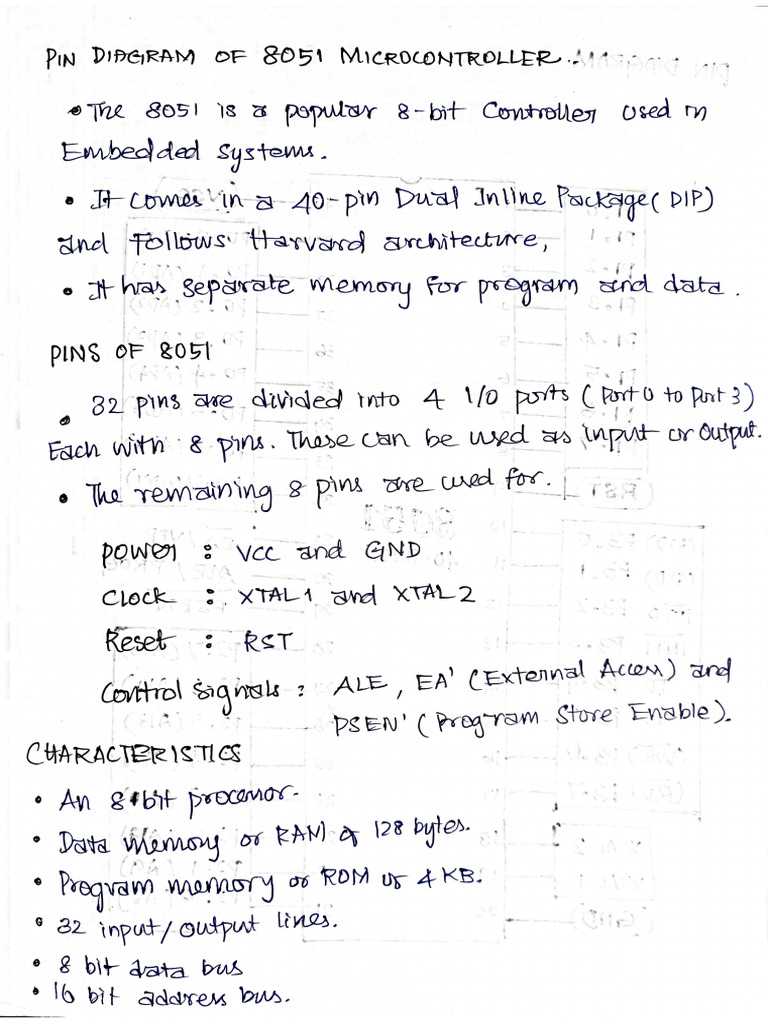 PIN DIAGRAM OF 8051 MICROCONTROLLER.
• The 8051 is a popular 8-bit Controller used in
Embedded Systems.
• It comes in a 40-pin Dual Inline Package (DIP)
and follows Harvard architecture,
• It has separate memory for program and data.
PINS OF 8051
• 32 pins are divided into 4 I/O ports (Port 0 to Port 3)
Each with 8 pins. These can be used as input or output.
• The remaining 8 pins are used for.
Power : VCC and GND
Clock : XTAL1 and XTAL2
Reset : RST
Control signals : ALE, EA' (External Access) and
PSEN' (Program Store Enable).
CHARACTERISTICS
• An 8 bit processor.
• Data memory or RAM of 128 bytes.
• Program memory or ROM of 4 KB.
• 32 input/output lines.
• 8 bit data bus
• 16 bit address bus.